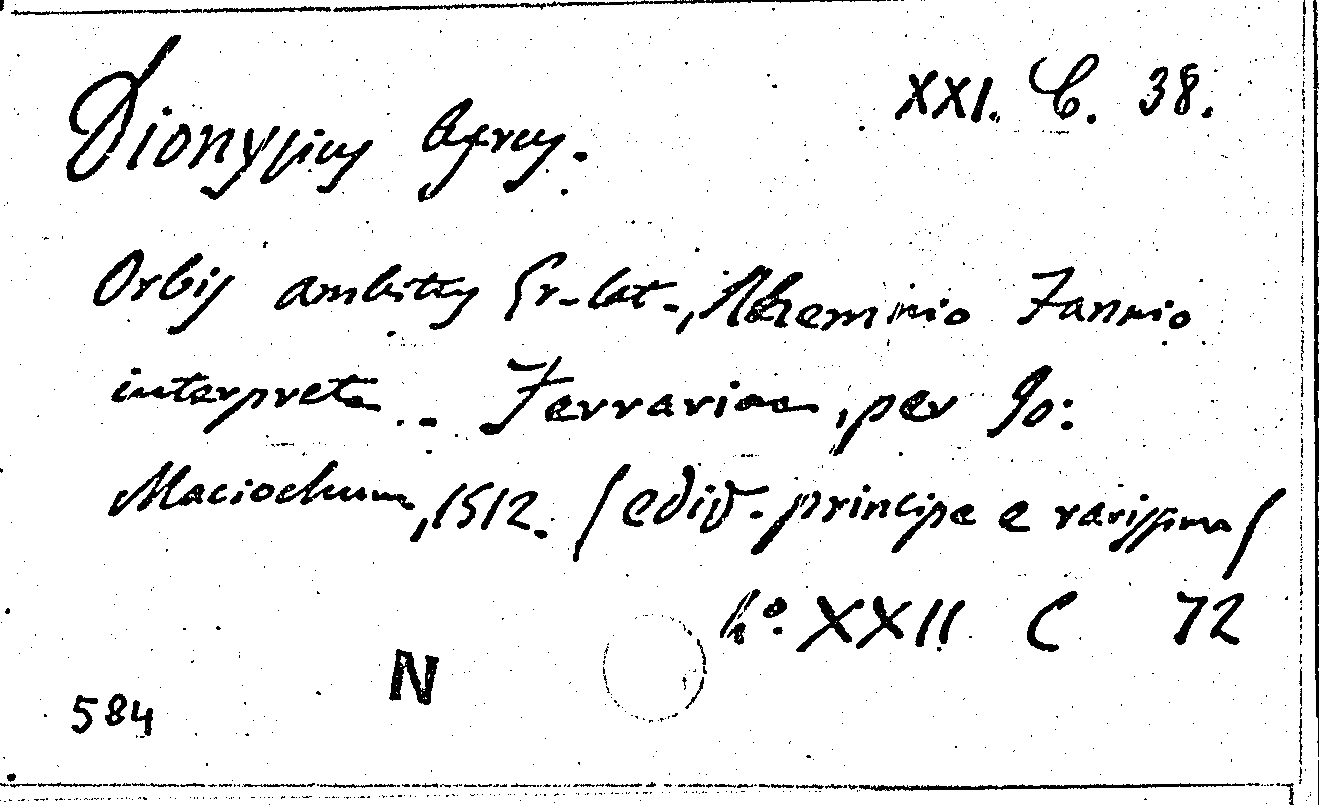 XXI. C. 38.
Dionysius Afrus.
Orbis ambitus Gr.-lat., Rhemnio Fannio
interprete.. Ferrariae, per Jo:
Maciochum, 1512. (ediz. principe e rarissima)
4°. XXII C 72
N
584